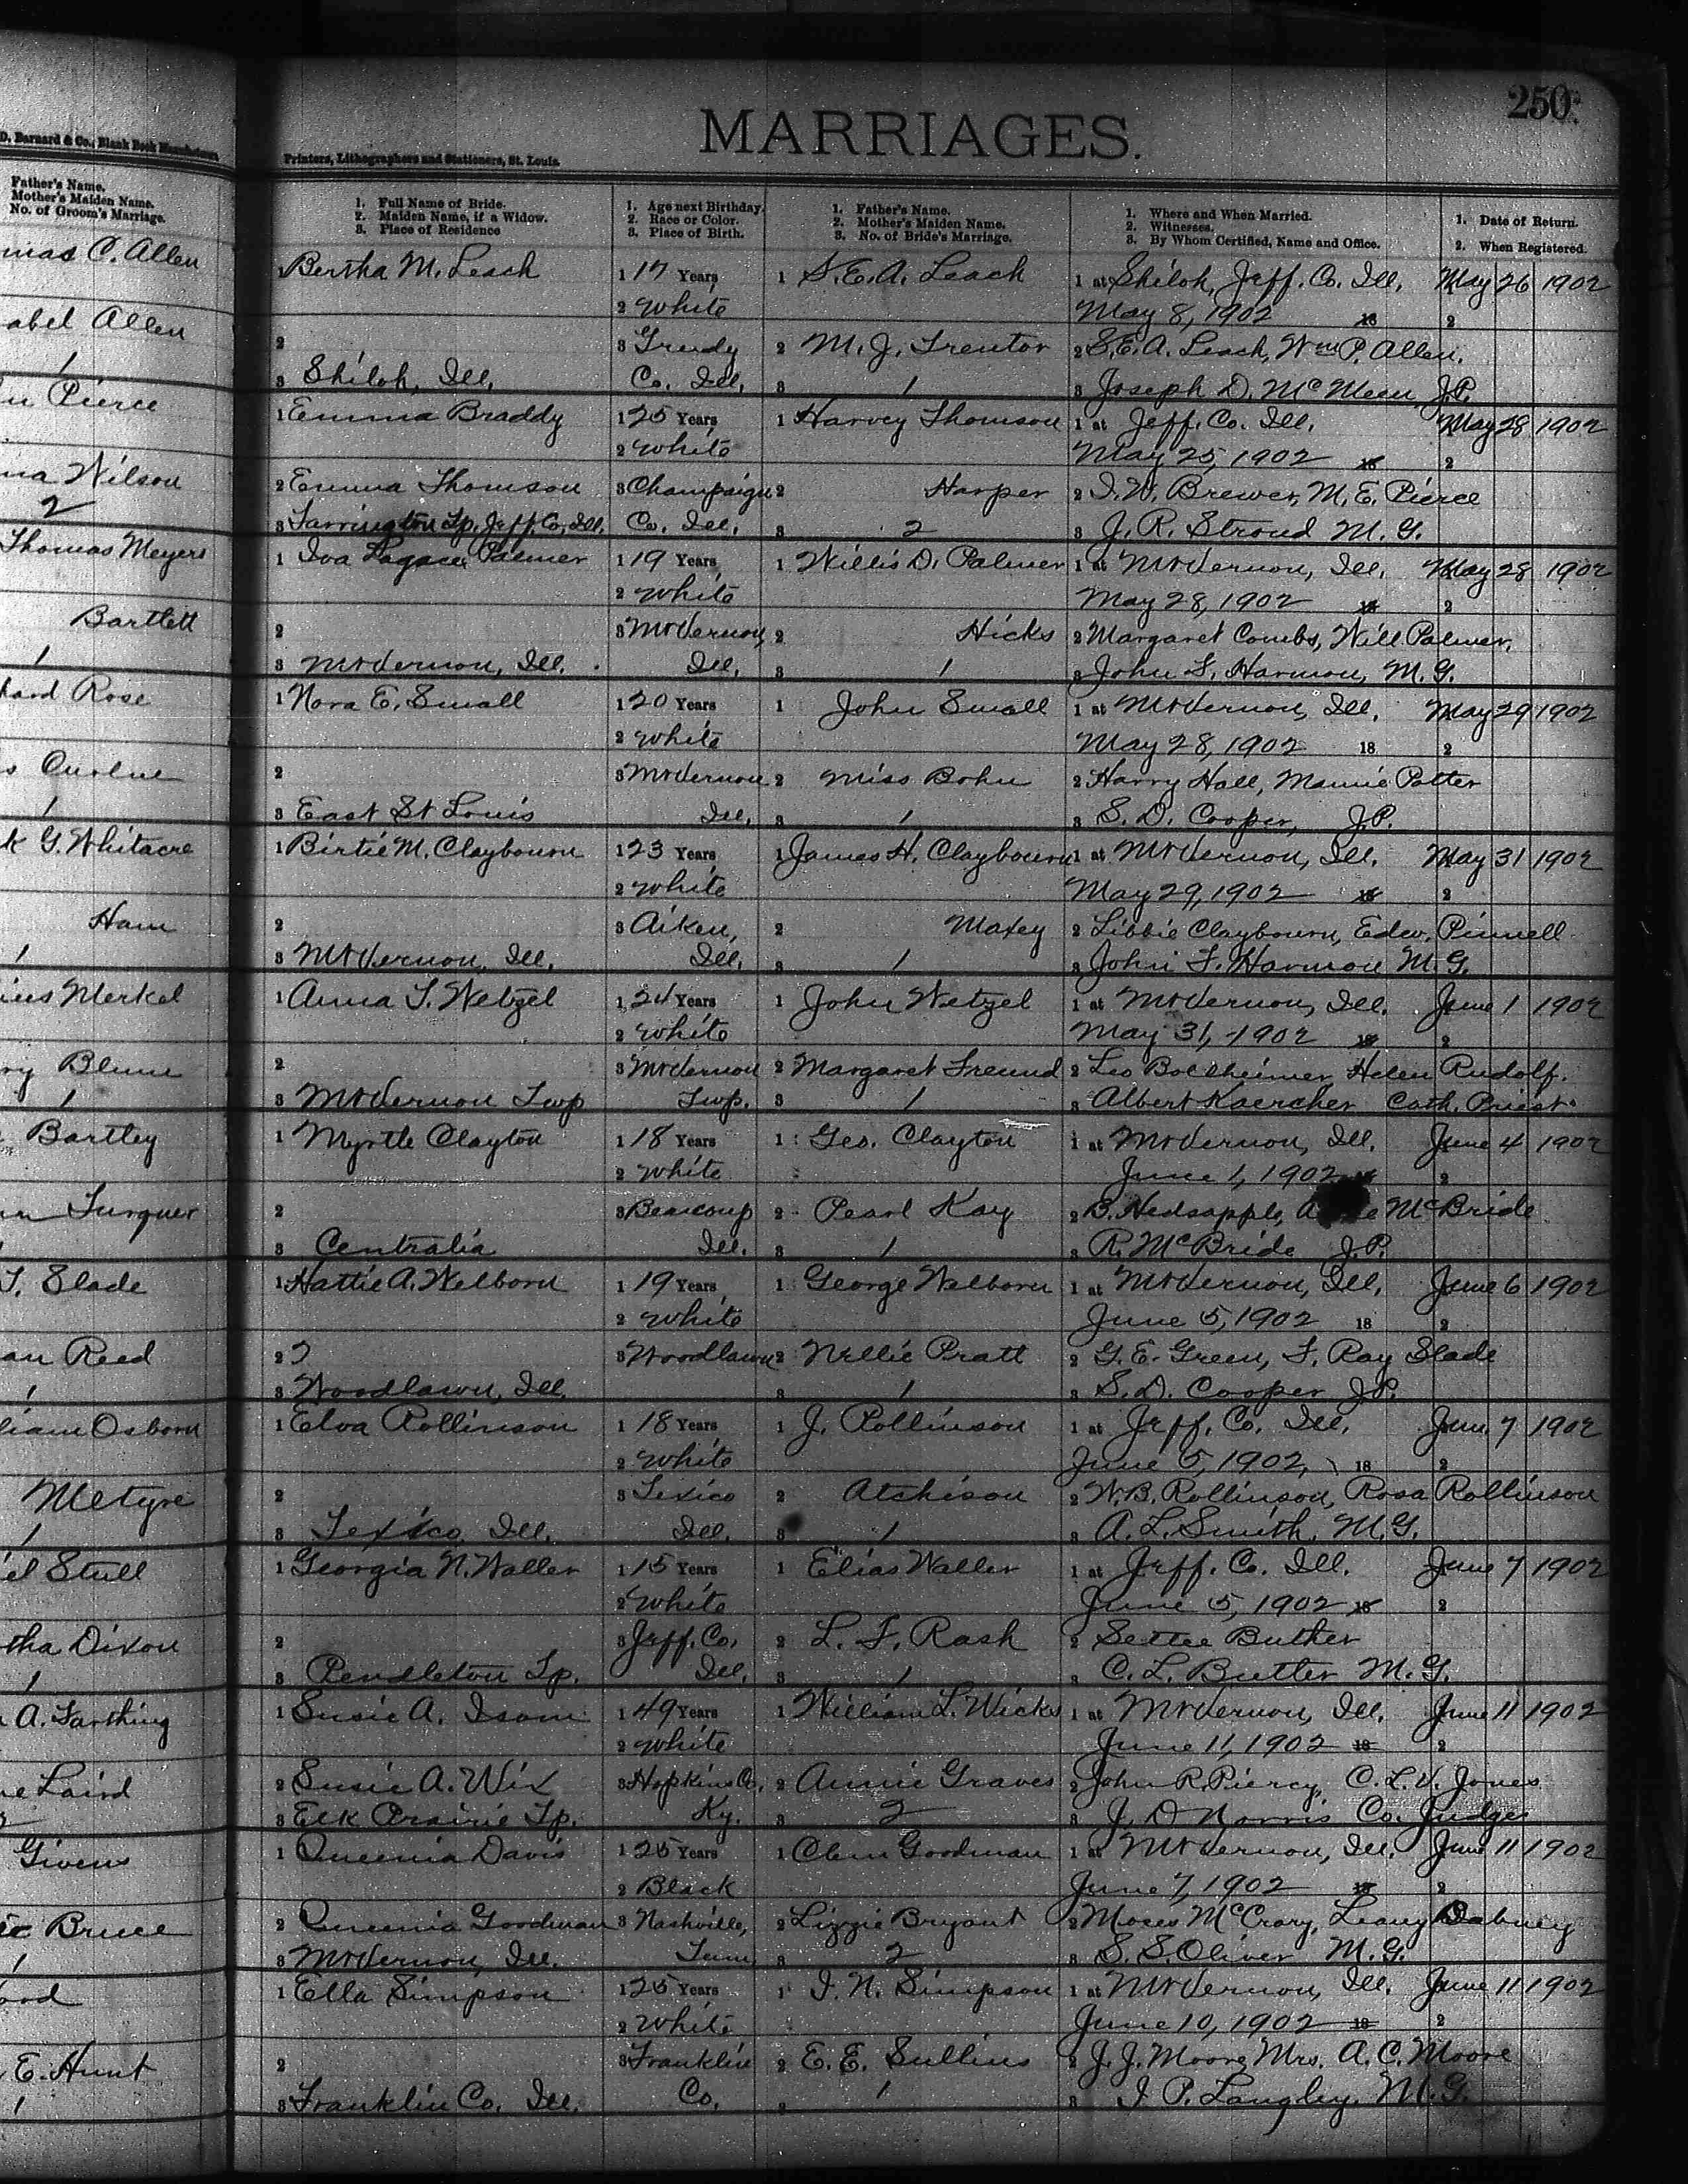 250.
MARRIAGES.
D. Barnard & Co., Blank Book Manufacturers
Printers, Lithographers and Stationers, St. Louis.
Father's Name.
Mother's Maiden Name.
No. of Groom's Marriage.
1. Full Name of Bride.
2. Maiden Name, if a Widow.
3. Place of Residence
1. Age next Birthday.
2. Race or Color.
3. Place of Birth.
1. Father's Name.
2. Mother's Maiden Name.
3. No. of Bride's Marriage.
1. Where and When Married.
2. Witnesses.
3. By Whom Certified, Name and Office.
1. Date of Return.
2. When Registered.
mas C. Allen 1 Bertha M. Leach 1 17 Years 1 S. E. A. Leach 1 at Shiloh, Jeff. Co. Ill. May 26 1902
2 White May 8, 1902 18 2
abel Allen 2 3 Grundy 2 M. J. Trentor 2 S. E. A. Leach, Wm P. Allen.
1 3 Shiloh, Ill. Co. Ill. 3 1 3 Joseph D. McMeen J.P.
n Pierce 1 Emma Braddy 1 25 Years 1 Harvey Thomson 1 at Jeff. Co. Ill. May 28 1902
2 White May 25, 1902 18 2
na Wilson 2 Emma Thomson 3 Champaign 2 Harper 2 I. W. Brewer, M. E. Pierce
2 3 Farrington Tp. Jeff. Co. Ill. Co. Ill. 3 2 3 J. R. Stroud M. G.
Thomas Meyers 1 Iva Palmer 1 19 Years 1 Willis D. Palmer 1 at Mt Vernon, Ill. May 28 1902
2 White May 28, 1902 18 2
Bartlett 2 3 Mt Vernon, 2 Hicks 2 Margaret Combs, Will Palmer.
1 3 Mt Vernon, Ill. Ill. 3 1 3 John F. Harmon, M. G.
hard Rose 1 Nora E. Small 1 20 Years 1 John Small 1 at Mt Vernon, Ill. May 29 1902
2 White May 28, 1902 18 2
s 2 3 Mt Vernon 2 Miss Bohn 2 Harry Hall, Mamie Potter
1 3 East St Louis Ill. 3 1 3 S. D. Cooper, J.P.
k G. Whitacre 1 Birtie M. Claybourn 1 23 Years 1 James H. Claybourn 1 at Mt Vernon, Ill. May 31 1902
2 White May 29, 1902 18 2
Ham 2 3 Aiken, 2 Maxey 2 Libbie Claybourn, Edw. Pinnell
1 3 Mt Vernon, Ill. Ill. 3 1 3 John F. Harmon M. G.
ius Merkel 1 Anna T. Wetzel 1 24 Years 1 John Wetzel 1 at Mt Vernon, Ill. June 1 1902
2 White May 31, 1902 18 2
ry Blum 2 3 Mt Vernon 2 Margaret Freund 2 Leo Helen Rudolf.
1 3 Mt Vernon Twp Twp. 3 1 3 Albert Kaercher Cath. Priest
Bartley 1 Myrtle Clayton 1 18 Years 1 Geo. Clayton 1 at Mt Vernon, Ill. June 4 1902
2 White June 1, 1902 18 2
n Turquer 2 3 Beaucoup 2 Pearl Kay 2 B. Hedsapple, McBride
3 Centralia Ill. 3 1 3 R. McBride J.P.
T. Slade 1 Hattie A. Welborn 1 19 Years 1 George Welborn 1 at Mt Vernon, Ill. June 6 1902
2 White June 5, 1902 18 2
an Reed 2 3 Woodlawn 2 Nellie Pratt 2 G. E. Green, F. Ray Slade
1 3 Woodlawn, Ill. 3 1 3 S. D. Cooper J.P.
liam Osborn 1 Elva Rollinson 1 18 Years 1 J. Rollinson 1 at Jeff. Co. Ill. June 7 1902
2 White June 5, 1902, 18 2
Metyre 2 3 Texico 2 Atchison 2 W. B. Rollinson, Rosa Rollinson
1 3 Texico Ill. Ill. 3 1 3 A. L. Smith, M. G.
el Stull 1 Georgia N. Waller 1 15 Years 1 Elias Waller 1 at Jeff. Co. Ill. June 7 1902
2 White June 5, 1902 18 2
tha Dixon 2 3 Jeff. Co. 2 L. F. Rash 2
1 3 Pendleton Tp. Ill. 3 1 3 C. L. Butler M. G.
A. Farthing 1 Susie A. Isom 1 49 Years 1 William L. Wicks 1 at Mt Vernon, Ill. June 11 1902
2 White June 11, 1902 18 2
ne Laird 2 Susie A. Wix 3 Hopkins Co. 2 Annie Graves 2 John R. Piercy, C. L. V. Jones
2 3 Elk Prairie Tp. Ky. 3 2 3 J. D Norris Co. Judge
Givens 1 Queenia Davis 1 25 Years 1 Clem Goodman 1 at Mt Vernon, Ill. June 11 1902
2 Black June 7, 1902 18 2
Bruce 2 Queenia Goodman 3 Nashville, 2 Lizzie Bryant 2 Moses McCrary, Dabney
1 3 Mt Vernon, Ill. Tenn 3 2 3 S. S. Oliver M. G.
ord 1 Ella Simpson 1 25 Years 1 I. N. Simpson 1 at Mt Vernon, Ill. June 11 1902
2 White June 10, 1902 18 2
E. Hunt 2 3 Franklin 2 E. E. Sullins 2 J. J. Moore, Mrs. A. C. Moore
1 3 Franklin Co. Ill. Co. 3 1 3 I P. Langley. M. G.